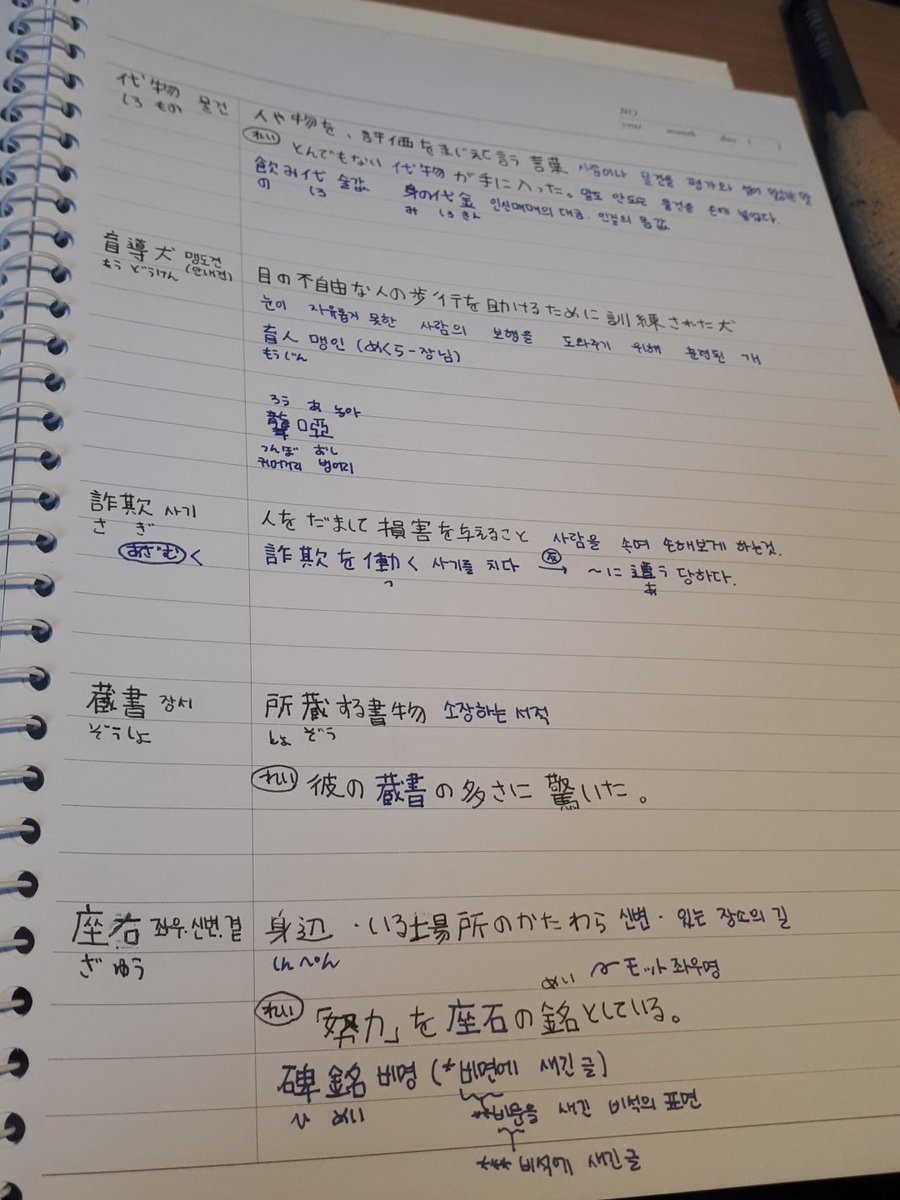 NO.
year month day ( )
代物 물건
しろ もの
人や物を、評価をまじえて言う言葉 사람이나 물건을 평가와 섞어 말하는 말
れい とんでもない 代物 が手に入った。 말도 안되는 물건을 손에 넣었다.
飲み代 술값 身の代金 인신매매의 대금. 인질의 몸값
の しろ み しろ きん
盲導犬 맹도견
もう どうけん (안내견)
目の不自由な人の歩行を助けるために訓練された犬
눈이 자유롭지 못한 사람의 보행을 도와주기 위해 훈련된 개
盲人 맹인 (めくら-장님)
もうじん
ろう あ 농아
聾口啞
つんぼ おし
귀머거리 벙어리
詐欺 사기
さ ぎ
あざむく
人をだまして損害を与えること 사람을 속여 손해보게 하는것.
詐欺を働く 사기를 치다 → ~に遭う 당하다.
あ
蔵書 장서
ぞうしょ
所蔵する書物 소장하는 서적
しょ ぞう
れい 彼の蔵書の多さに驚いた。
座右 좌우.신변.곁
ざ ゆう
身辺 ・いる場所のかたわら 신변・있는 장소의 길
しんぺん
めい モットー 좌우명
れい 「努力」を座石の銘としている。
碑銘 비명 (*비면에 새긴 글)
ひ めい **비문을 새긴 비석의 표면
*** 비석에 새긴글